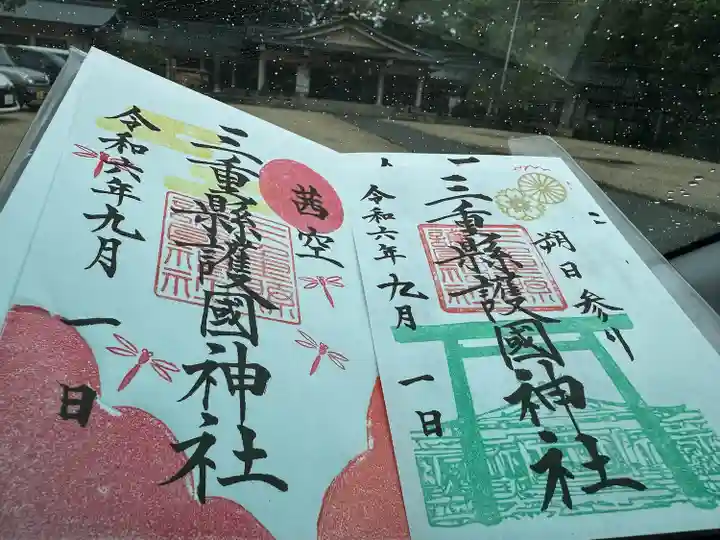 茜空
三重縣護國神社
令和六年九月一日
朔日参り
三重縣護國神社
令和六年九月一日